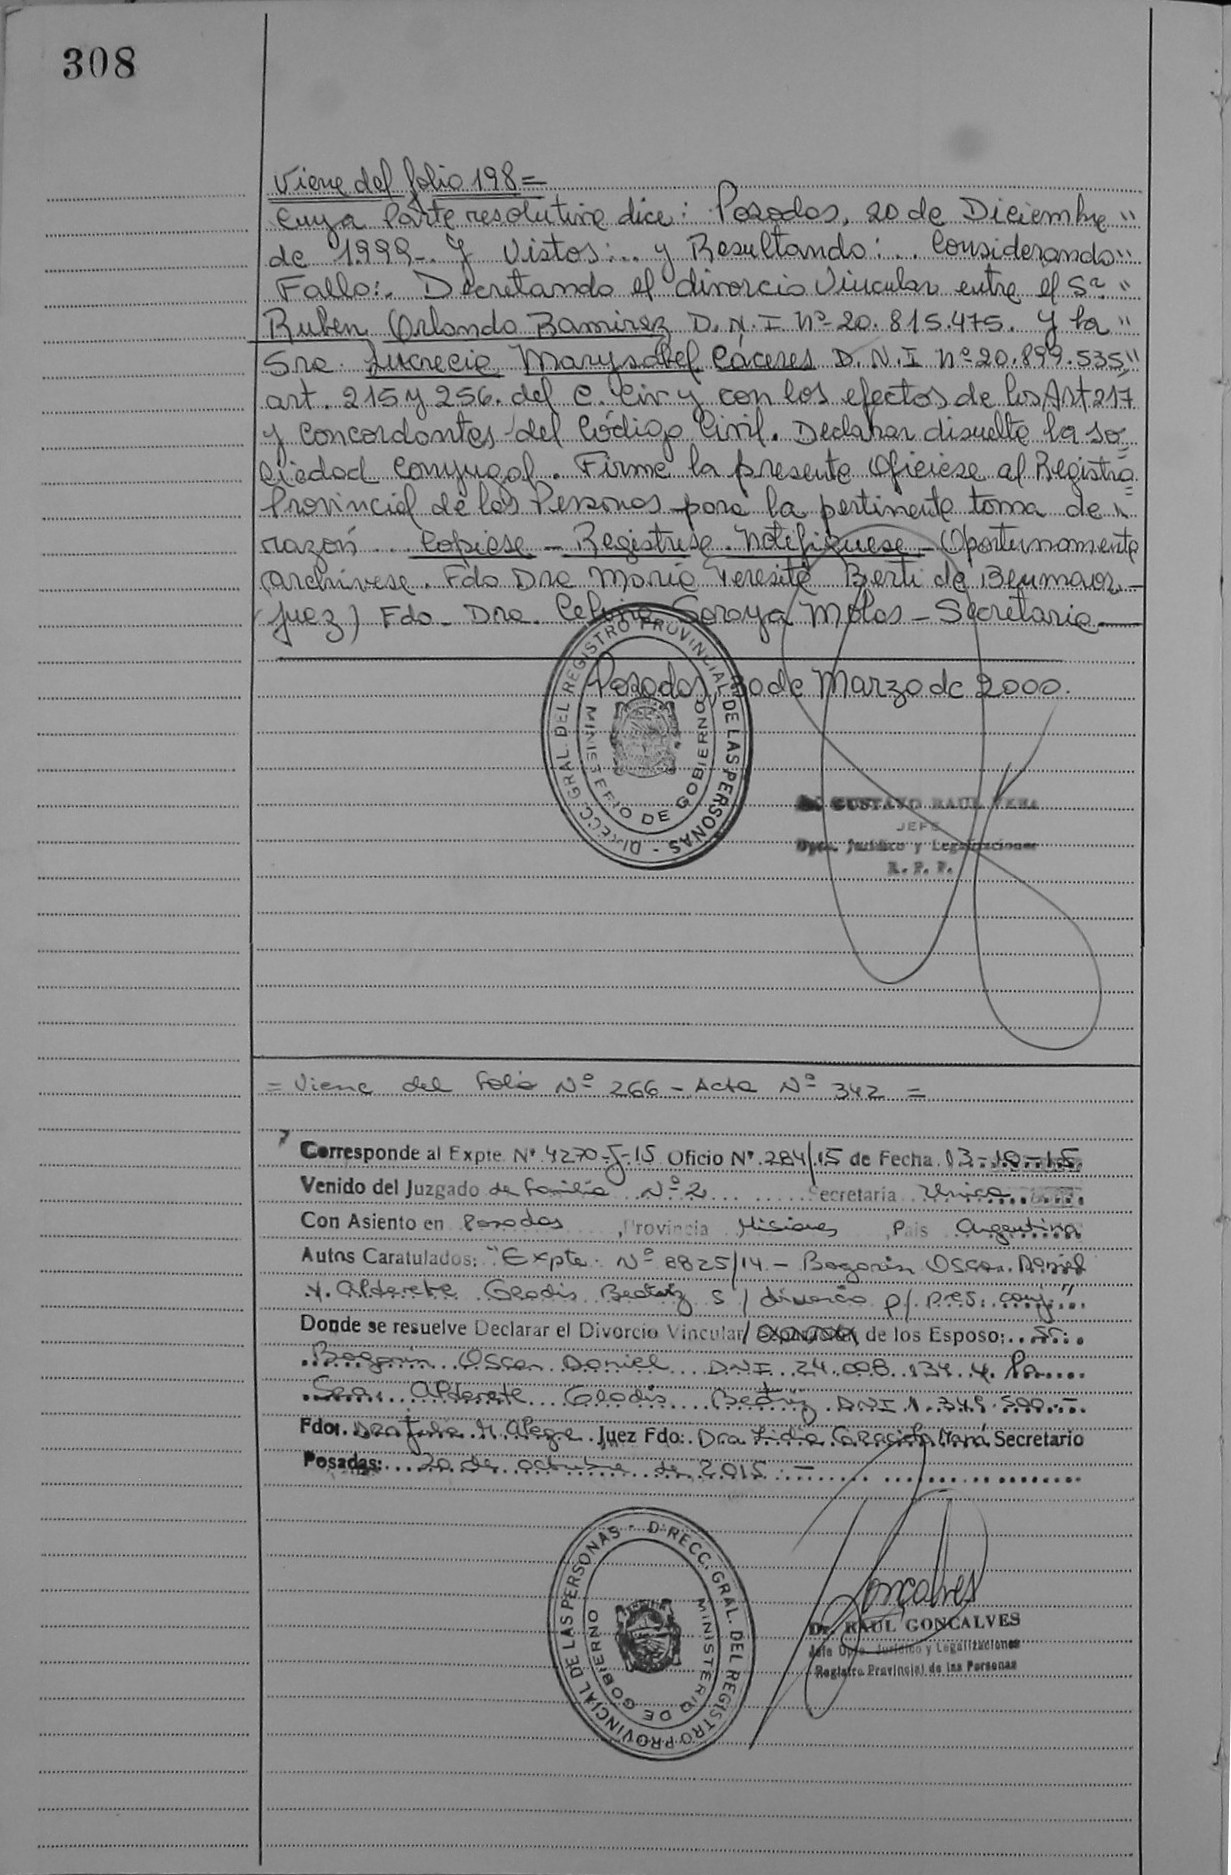 308
Viene del folio 198=
Cuya Parte resolutiva dice: Posadas, 20 de Diciembre "
de 1999-. Y Vistos:... y Resultando:.. Considerando:"
Fallo:. Decretando el divorcio Vincular entre el Sr. "
Ruben Orlando Ramirez D.N.I Nº 20.815.475. y la "
Sra. Lucrecia Marysabel Cáceres D.N.I nº 20.899.535,"
art. 215 y 256. del C. Civ y con los efectos de los Art 217
y concordantes del Código Civil. Declarar disuelta la so=
ciedad conyugal. Firme la presente Ofíciese al Registro
Provincial de las Personas para la pertinente toma de "
razón... Copiese - Registrese. Notifiquese - Oportunamente
archívese. Fdo Dra María Teresita Berti de
Juez) Fdo. Dra. Soraya Molas - Secretaria
DIRECC. GRAL. DEL REGISTRO PROVINCIAL DE LAS PERSONAS -
MINISTERIO DE GOBIERNO
Posadas, 30 de Marzo de 2000.
GUSTAVO RAUL VERA
JEFE
Dpto. Jurídico y Legalizaciones
R. P. P.
= Viene del folio Nº 266 - Acta Nº 342 =
Corresponde al Expte. Nº. 4270-J-15 Oficio Nº. 284/15 de Fecha 13-10-15
Venido del Juzgado de Familia Nº 2 Secretaria Unica
Con Asiento en Posadas, Provincia Misiones, Pais Argentina
Autos Caratulados: "Expte. Nº 8825/14 - Bogarin Oscar Daniel
y. Alderete Gladis Beatriz s/ divorcio p/ pres. conj."
Donde se resuelve Declarar el Divorcio Vincular/ de los Esposo: Sr.
Bogarin Oscar Daniel DNI 24.008.134 y la
Sra. Alderete Gladis Beatriz DNI
Fdo: Dra Julia M. Alegre Juez Fdo: Dra Lidia Secretario
Posadas: 20 de octubre de 2015.-
DIRECC. GRAL. DEL REGISTRO PROVINCIAL DE LAS PERSONAS -
MINISTERIO DE GOBIERNO
Gonçalves
Dr. RAUL GONCALVES
Jefe Dpto. Jurídico y Legalizaciones
Registro Provincial de las Personas